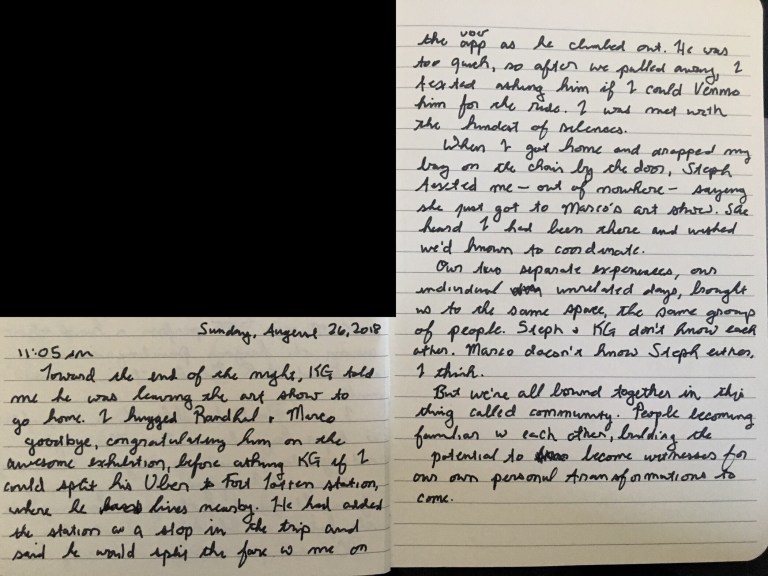 Sunday, August 26, 2018
11:05 am
Toward the end of the night, KG told
me he was leaving the art show to
go home. I hugged Randhul + Marco
goodbye, congratulating him on the
awesome exhibition, before asking KG if I
could split his Uber to Fort Totten station,
where he lives nearby. He had added
the station as a stop in the trip and
said he would split the fare w me on
the uber app as he climbed out. He was
too quick, so after we pulled away, I
texted asking him if I could Venmo
him for the ride. I was met with
the kindest of silences.
When I got home and dropped my
bag on the chair by the door, Steph
texted me - out of nowhere - saying
she just got to Marco's art show. She
heard I had been there and wished
we'd known to coordinate.
Our two separate experiences, our
individual unrelated days, brought
us to the same space, the same group
of people. Steph + KG don't know each
other. Marco doesn't know Steph either,
I think.
But we're all bound together in this
thing called community. People becoming
familiar w each other, building the
potential to become witnesses for
our own personal transformations to
come.